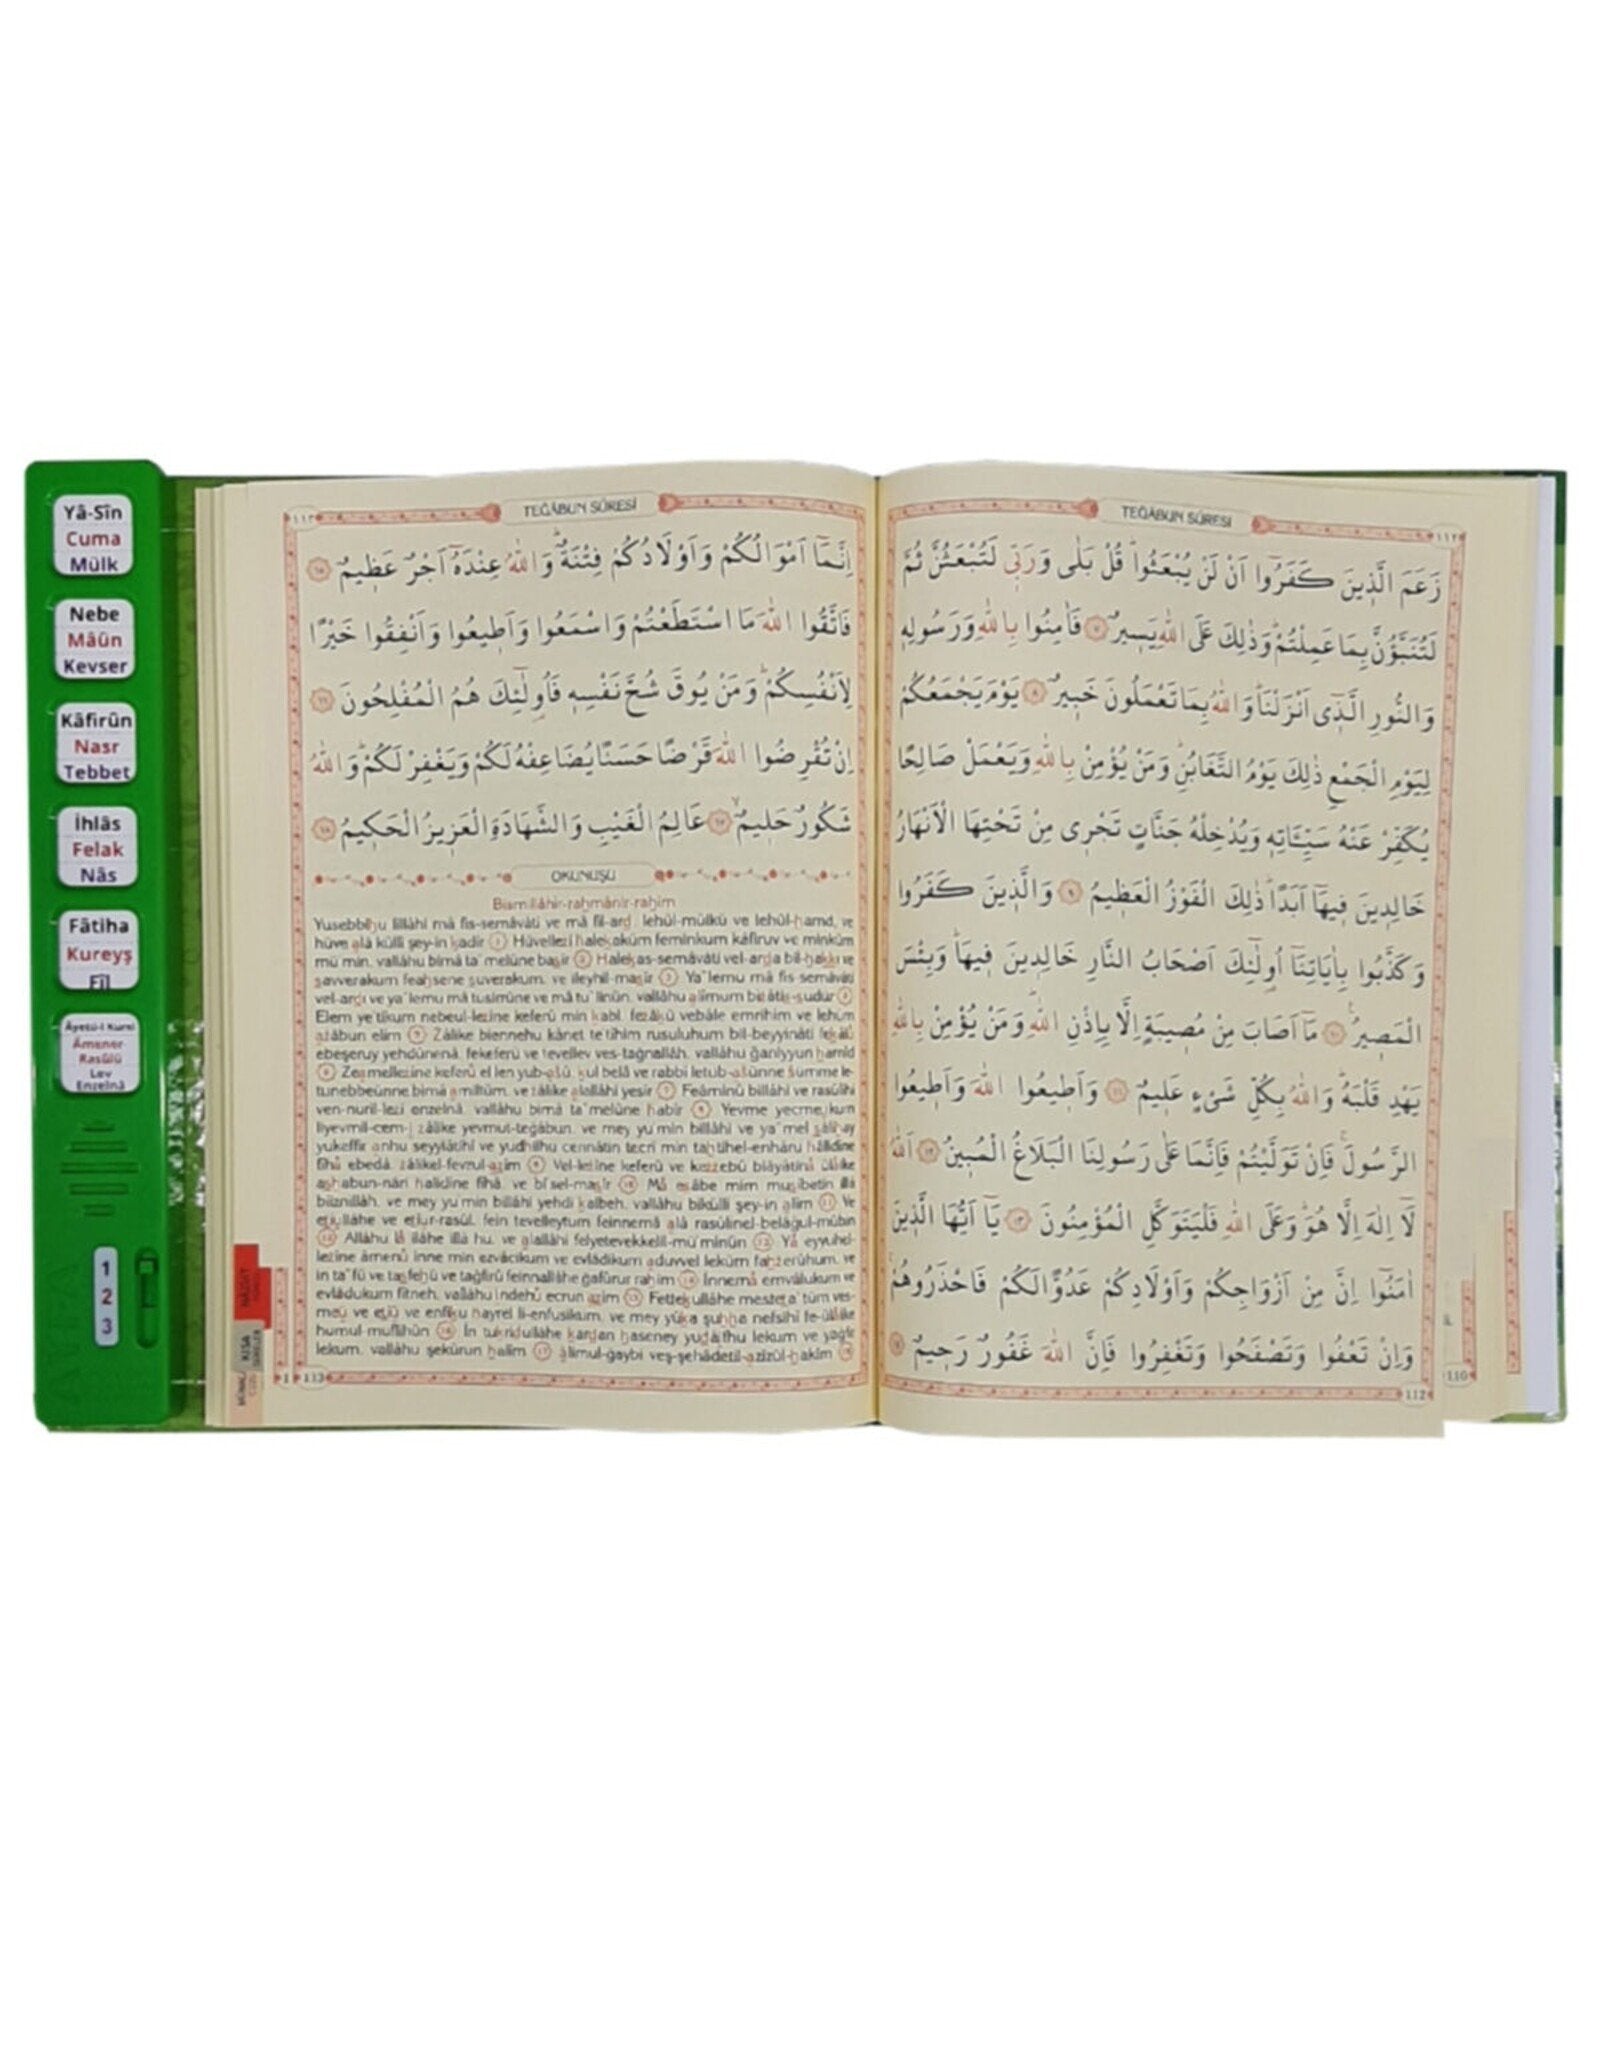 Yâ-Sîn
Cuma
Mülk
Nebe
Mâûn
Kevser
Kâfirûn
Nasr
Tebbet
İhlâs
Felak
Nâs
Fâtiha
Kureyş
Fîl
Âyetü-l Kürsî
Âmener-
Rasûlü
Lev
Enzelnâ
1
2
3
TEĞÂBUN SÛRESİ
١١٢
زَعَمَ الَّذِينَ كَفَرُوا اَنْ لَنْ يُبْعَثُوا قُلْ بَلٰى وَرَبِّى لَتُبْعَثُنَّ ثُمَّ
لَتُنَبَّؤُنَّ بِمَا عَمِلْتُمْ وَذٰلِكَ عَلَى اللّٰهِ يَسِيرٌ ٧ فَاٰمِنُوا بِاللّٰهِ وَرَسُولِهِ
وَالنُّورِ الَّذِى اَنْزَلْنَا وَاللّٰهُ بِمَا تَعْمَلُونَ خَبِيرٌ ٨ يَوْمَ يَجْمَعُكُمْ
لِيَوْمِ الْجَمْعِ ذٰلِكَ يَوْمُ التَّغَابُنِ وَمَنْ يُؤْمِنْ بِاللّٰهِ وَيَعْمَلْ صَالِحًا
يُكَفِّرْ عَنْهُ سَيِّـَٔاتِهِ وَيُدْخِلْهُ جَنَّاتٍ تَجْرِى مِنْ تَحْتِهَا الْاَنْهَارُ
خَالِدِينَ فِيهَا اَبَدًا ذٰلِكَ الْفَوْزُ الْعَظِيمُ ٩ وَالَّذِينَ كَفَرُوا
وَكَذَّبُوا بِاٰيَاتِنَا اُولٰئِكَ اَصْحَابُ النَّارِ خَالِدِينَ فِيهَا وَبِئْسَ
الْمَصِيرُ ١٠ مَا اَصَابَ مِنْ مُصِيبَةٍ اِلَّا بِاِذْنِ اللّٰهِ وَمَنْ يُؤْمِنْ بِاللّٰهِ
يَهْدِ قَلْبَهُ وَاللّٰهُ بِكُلِّ شَىْءٍ عَلِيمٌ ١١ وَاَطِيعُوا اللّٰهَ وَاَطِيعُوا
الرَّسُولَ فَاِنْ تَوَلَّيْتُمْ فَاِنَّمَا عَلٰى رَسُولِنَا الْبَلَاغُ الْمُبِينُ ١٢ اَللّٰهُ
لَا اِلٰهَ اِلَّا هُوَ وَعَلَى اللّٰهِ فَلْيَتَوَكَّلِ الْمُؤْمِنُونَ ١٣ يَا اَيُّهَا الَّذِينَ
اٰمَنُوا اِنَّ مِنْ اَزْوَاجِكُمْ وَاَوْلَادِكُمْ عَدُوًّا لَكُمْ فَاحْذَرُوهُمْ
وَاِنْ تَعْفُوا وَتَصْفَحُوا وَتَغْفِرُوا فَاِنَّ اللّٰهَ غَفُورٌ رَحِيمٌ ١٤
112
110
TEĞÂBUN SÛRESİ
١١٣
اِنَّمَا اَمْوَالُكُمْ وَاَوْلَادُكُمْ فِتْنَةٌ وَاللّٰهُ عِنْدَهُ اَجْرٌ عَظِيمٌ ١٥
فَاتَّقُوا اللّٰهَ مَا اسْتَطَعْتُمْ وَاسْمَعُوا وَاَطِيعُوا وَاَنْفِقُوا خَيْرًا
لِاَنْفُسِكُمْ وَمَنْ يُوقَ شُحَّ نَفْسِهِ فَاُولٰئِكَ هُمُ الْمُفْلِحُونَ ١٦
اِنْ تُقْرِضُوا اللّٰهَ قَرْضًا حَسَنًا يُضَاعِفْهُ لَكُمْ وَيَغْفِرْ لَكُمْ وَاللّٰهُ
شَكُورٌ حَلِيمٌ ١٧ عَالِمُ الْغَيْبِ وَالشَّهَادَةِ الْعَزِيزُ الْحَكِيمُ ١٨
OKUNUŞU
Bismillâhir-rahmânir-rahîm
Yusebbihu lillâhi mâ fis-semâvâti ve mâ fil-ard, lehül-mülkü ve lehül-hamd, ve
hüve alâ külli şey-in kadîr 1 Hüvellezî halekaküm feminkum kâfiruv ve minküm
mü'min, vallâhu bimâ ta'melûne basîr 2 Halekas-semâvâti vel-arda bil-hakkı ve
savverakum feahsene suverakum, ve ileyhil-masîr 3 Ya'lemu mâ fis-semâvâti
vel-ardı ve ya'lemu mâ tusirrûne ve mâ tu'linûn, vallâhu alîmum bizâtis-sudûr 4
Elem ye'tikum nebeul-lezîne keferû min kabl, fezâkû vebâle emrihim ve lehüm
azâbun elîm 5 Zâlike biennehu kânet te'tîhim rusuluhum bil-beyyinâti fekâlû
ebeşeruy yehdûnenâ, fekeferû ve tevellev ves-tağnallâh, vallâhu ğaniyyun hamîd
6 Zeamellezîne keferû el len yub-asû, kul belâ ve rabbî letüb-asünne sümme le-
tunebbeünne bimâ amiltüm, ve zâlike alallâhi yesîr 7 Feâminû billâhi ve rasûlihi
ven-nuril-lezî enzelnâ, vallâhu bimâ ta'melûne habîr 8 Yevme yecmeukum
liyevmil-cem-i zâlike yevmut-teğâbun, ve mey yu'min billâhi ve ya'mel sâlihay
yukeffir anhu seyyiâtihî ve yudhilhu cennâtin tecrî min tahtihel-enhâru hâlidîne
fîhâ ebedâ, zâlikel-fevzul-azîm 9 Vel-lezîne keferû ve kezzebû biâyâtinâ ülâike
ashabun-nâri halidîne fîhâ, ve bi'sel-masîr 10 Mâ esâbe mim musîbetin illâ
biiznillâh, ve mey yu'min billâhi yehdi kalbeh, vallâhu bikülli şey-in alîm 11 Ve
etîullâhe ve etîur-rasûl, fein tevelleytum feinnemâ alâ rasûlinel-belâğul-mübîn
12 Allâhu lâ ilâhe illâ hu, ve alallâhi felyetevekkelil-mü'minûn 13 Yâ eyyuhel-
lezîne âmenû inne min ezvâcikum ve evlâdikum aduvvel lekûm fahzerûhum, ve
in ta'fû ve tasfehû ve tağfirû feinnallâhe ğafûrur rahîm 14 İnnemâ emvâlukum ve
evlâdukum fitneh, vallâhu indehû ecrun azîm 15 Fettekullâhe mesteta'tüm ves-
meû ve etîû ve enfiku hayrel li-enfusikum, ve mey yûka şuhha nefsihî fe-ülâike
humul-muflihûn 16 İn tukridullâhe kardan haseney yudâıfhu lekum ve yağfir
lekum, vallâhu şekûrun halîm 17 âlimul-ğaybi veş-şehâdetil-azîzül-hakîm 18
113
KISA